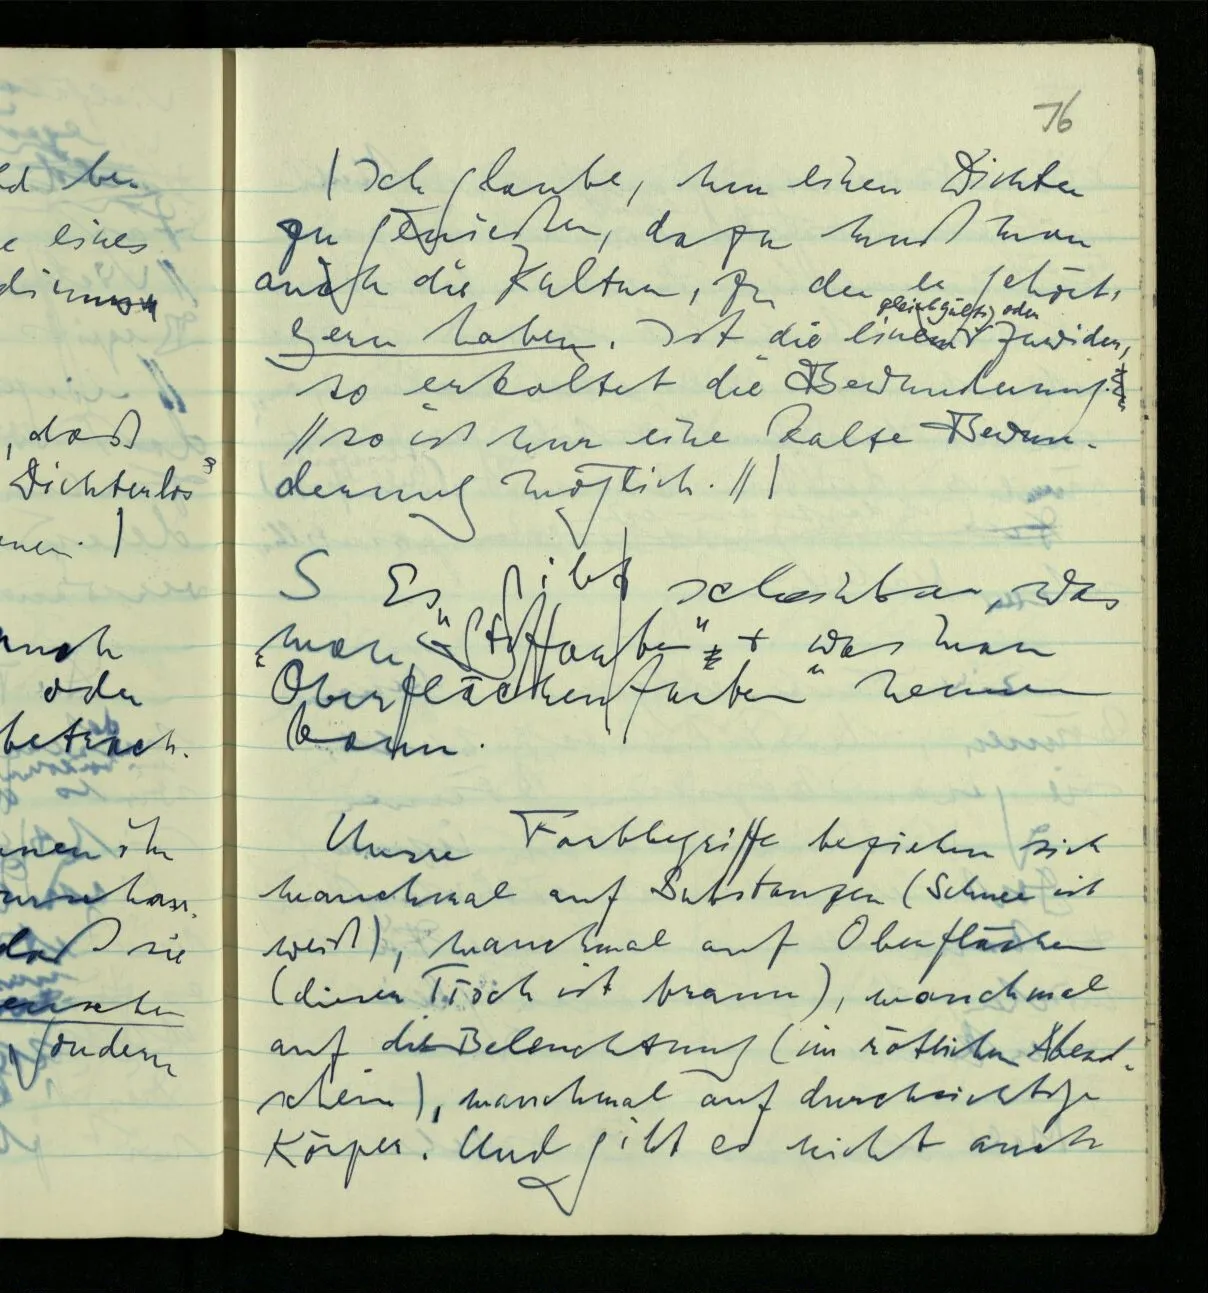 ld ben
e eines
, daß
Dichterlos
enen. |
auch
oder
betrach-
nen ihr
daß sie
sondern
76
| Ich glaube, um einen Dichter
zu genießen, dazu muß man
auch die Kultur, zu der er gehört,
gleichgültig oder
gern haben. Ist die einem zuwider,
so erkaltet die Bewunderung.
// so ist nur eine kalte Bewun-
derung möglich. // |
S Es gibt scheinbar, was
man „Stoffarben" + was man
„Oberflächenfarben" nennen
kann.
Unsre Farbbegriffe beziehen sich
manchmal auf Substanzen (Schnee ist
weiß), manchmal auf Oberflächen
(dieser Tisch ist braun), manchmal
auf die Beleuchtung (im rötlichen Abend-
schein), manchmal auf durchsichtige
Körper. Und gibt es nicht auch